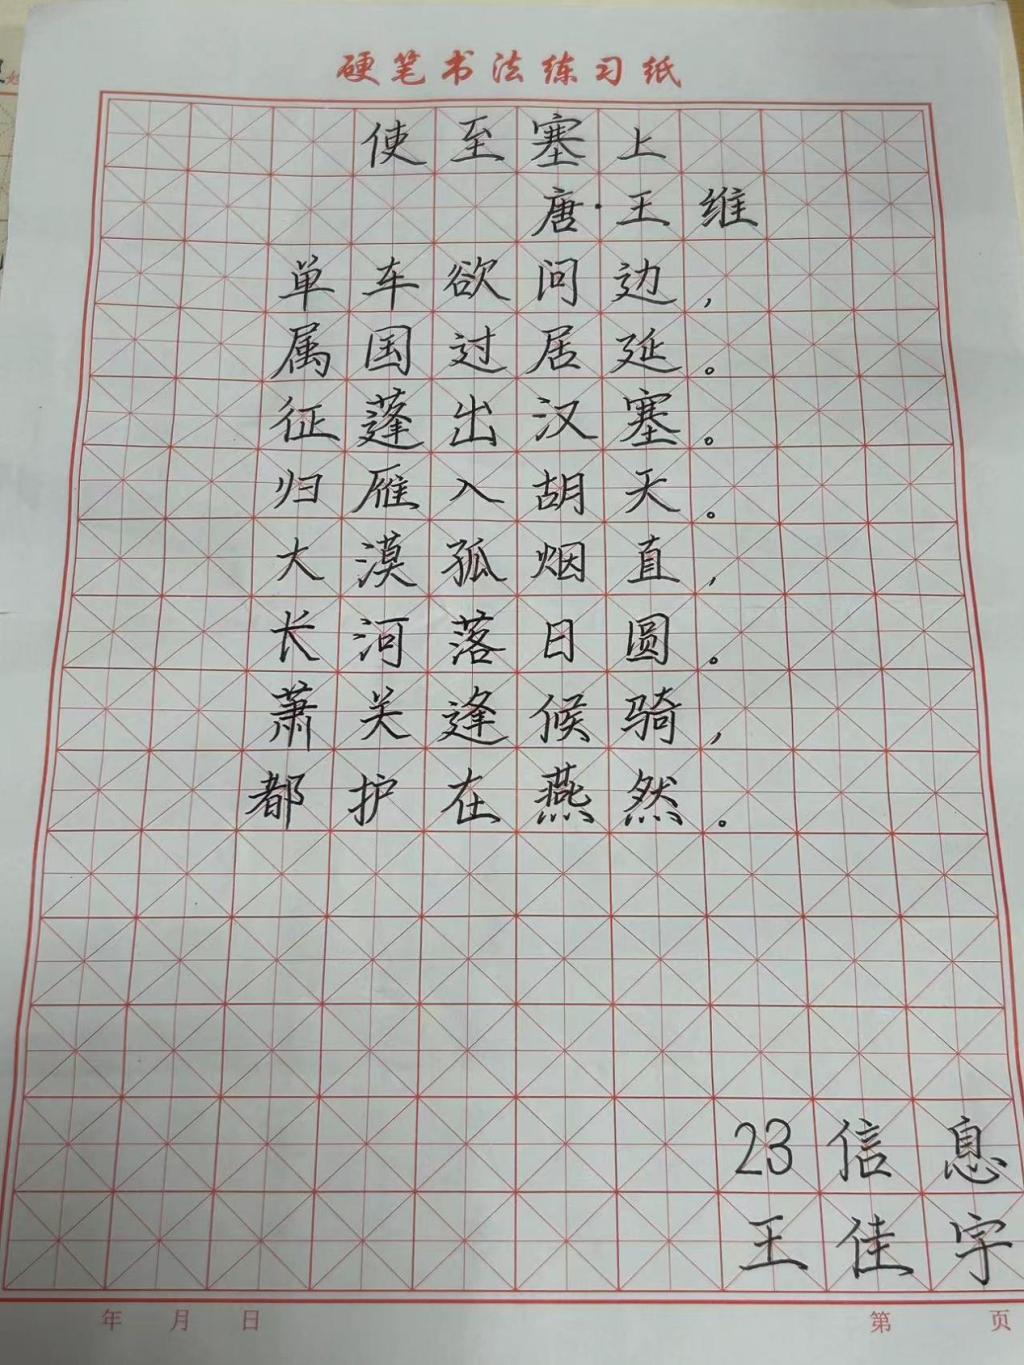 硬笔书法练习纸
使至塞上
唐·王维
单车欲问边,
属国过居延。
征蓬出汉塞。
归雁入胡天。
大漠孤烟直,
长河落日圆。
萧关逢候骑,
都护在燕然。
23信息
王佳宇
年 月 日 第 页